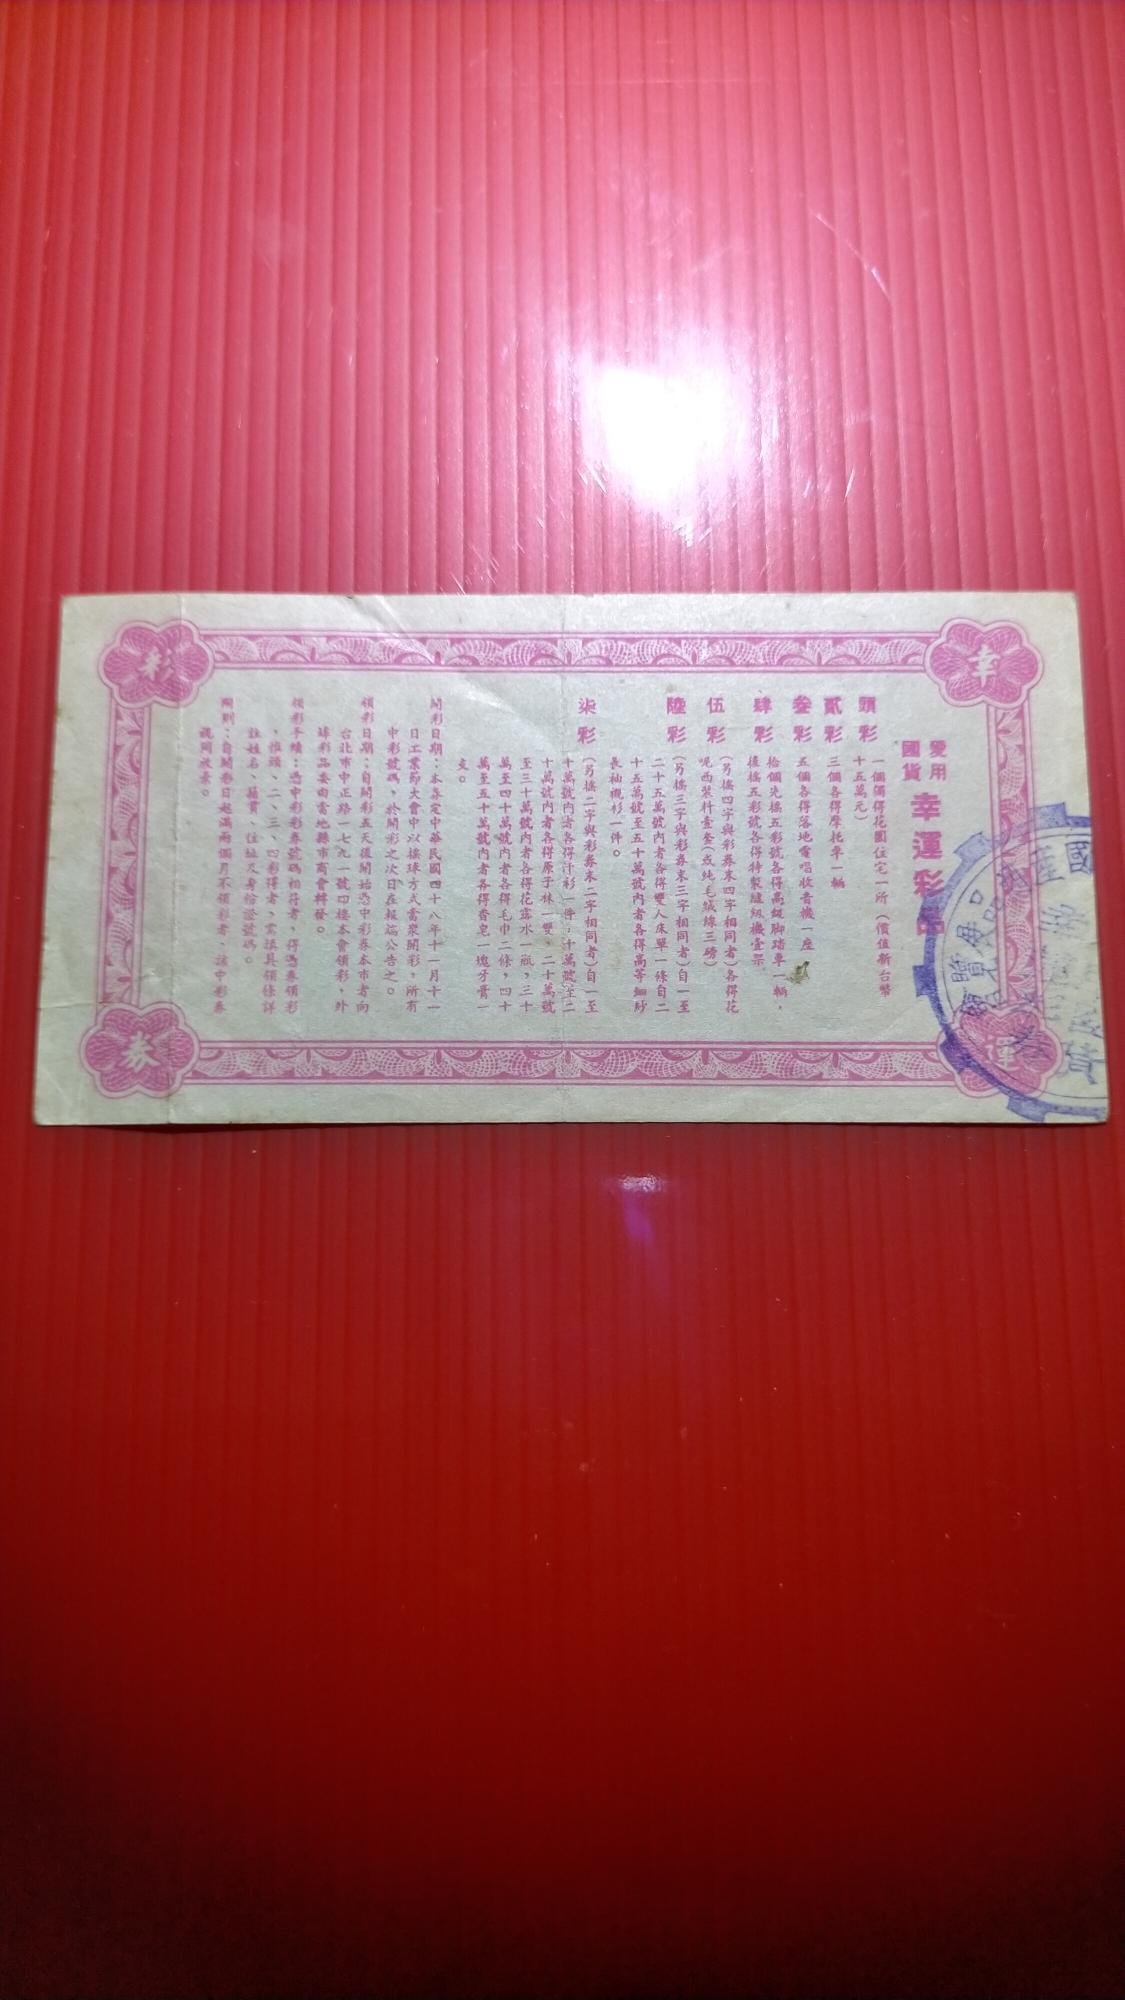 幸運彩券
愛用
國貨
幸運彩品
頭彩
一個獨得花園住宅一所（價值新台幣
十五萬元）
貳彩
三個各得摩托車一輛
叁彩
五個各得落地電唱收音機一座
肆彩
拾個先搖五彩號各得高級脚踏車一輛，
後搖五彩號各得特製縫紉機壹架
伍彩
（另搖四字與彩券末四字相同者）各得花
呢西裝料壹套（或純毛絨線三磅）
陸彩
（另搖三字與彩券末三字相同者）自一至
二十五萬號內者各得雙人床單一條自二
十五萬號至五十萬號內者各得高等細紗
長袖襯衫一件。
柒彩
（另搖二字與彩券末二字相同者）自一至
十萬號內者各得汗衫一件，十萬號至二
十萬號內者各得原子袜一雙、二十萬號
至三十萬號內者各得花露水一瓶，三十
萬至四十萬號內者各得毛巾二條，四十
萬至五十萬號內者各得香皂一塊牙膏一
支。
開彩日期：本券定中華民國四十八年十一月十一
日工業節大會中以搖球方式當眾開彩，所有
中彩號碼，於開彩之次日在報端公告之。
領彩日期：自開彩五天後開始憑中彩券本市者向
台北市中正路一七九一號四樓本會領彩，外
埠彩品委由當地縣市商會轉發。
領彩手續：憑中彩彩券號碼相符者，得憑券領彩
，惟頭、二、三、四彩得者，需填具領條詳
註姓名、籍貫、住址及身份證號碼。
附則：自開彩日起滿兩個月不領彩者，該中彩券
視同放棄。
國產
品展覽